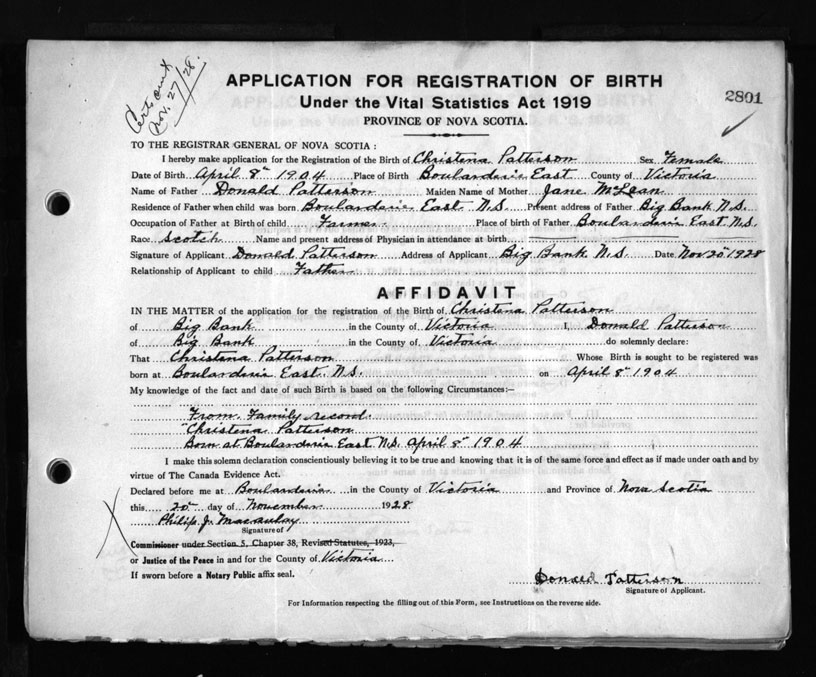 Cert sent
Nov. 27/28.
APPLICATION FOR REGISTRATION OF BIRTH
Under the Vital Statistics Act 1919
2801
PROVINCE OF NOVA SCOTIA.
TO THE REGISTRAR GENERAL OF NOVA SCOTIA:
I hereby make application for the Registration of the Birth of Christena Patterson Sex Female
Date of Birth April 8th 1904 Place of Birth Boularderie East County of Victoria
Name of Father Donald Patterson Maiden Name of Mother Jane McLean
Residence of Father when child was born Boularderie East N.S. Present address of Father Big Bank N.S.
Occupation of Father at Birth of child Farmer Place of birth of Father Boularderie East N.S.
Race Scotch Name and present address of Physician in attendance at birth
Signature of Applicant Donald Patterson Address of Applicant Big Bank N.S. Date Nov 20th 1928
Relationship of Applicant to child Father
AFFIDAVIT
IN THE MATTER of the application for the registration of the Birth of Christena Patterson
of Big Bank in the County of Victoria I, Donald Patterson
of Big Bank in the County of Victoria do solemnly declare:
That Christena Patterson Whose Birth is sought to be registered was
born at Boularderie East N.S. on April 8th 1904
My knowledge of the fact and date of such Birth is based on the following Circumstances:—
From Family record.
"Christena Patterson
Born at Boularderie East N.S. April 8th 1904
I make this solemn declaration conscientiously believing it to be true and knowing that it is of the same force and effect as if made under oath and by
virtue of The Canada Evidence Act.
Declared before me at Boularderie in the County of Victoria and Province of Nova Scotia
this 20th day of November 1928
Philip J. Macaulay
Signature of
Commissioner under Section 5, Chapter 38, Revised Statutes, 1923,
or Justice of the Peace in and for the County of Victoria
If sworn before a Notary Public affix seal.
Donald Patterson
Signature of Applicant.
For Information respecting the filling out of this Form, see Instructions on the reverse side.